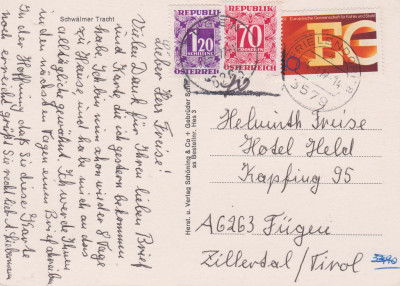 Schwälmer Tracht
Lieber Herr Freise!
Vielen Dank für Ihren lieben Brief
und Karte die ich gestern bekommen
habe. Ich bin nun schon wieder 8 Tage
zu Hause und habe mich an das
alltägliche gewöhnt. Ich werde Ihnen
in den nächsten Tagen einen Brief schreiben
In der Hoffnung daß Sie diese Karte
noch erreicht grüßt Sie recht lieb
Herst. u. Verlag Schöning & Co + Gebrüder Schmidt
REPUBLIK
1.20
SCHILLING
ÖSTERREICH
REPUBLIK
70
GROSCHEN
ÖSTERREICH
Europäische Gemeinschaft für Kohle und Stahl
3579
Helmuth Freise
Hotel Held
Kapfing 95
A6263 Fügen
Zillertal/Tirol